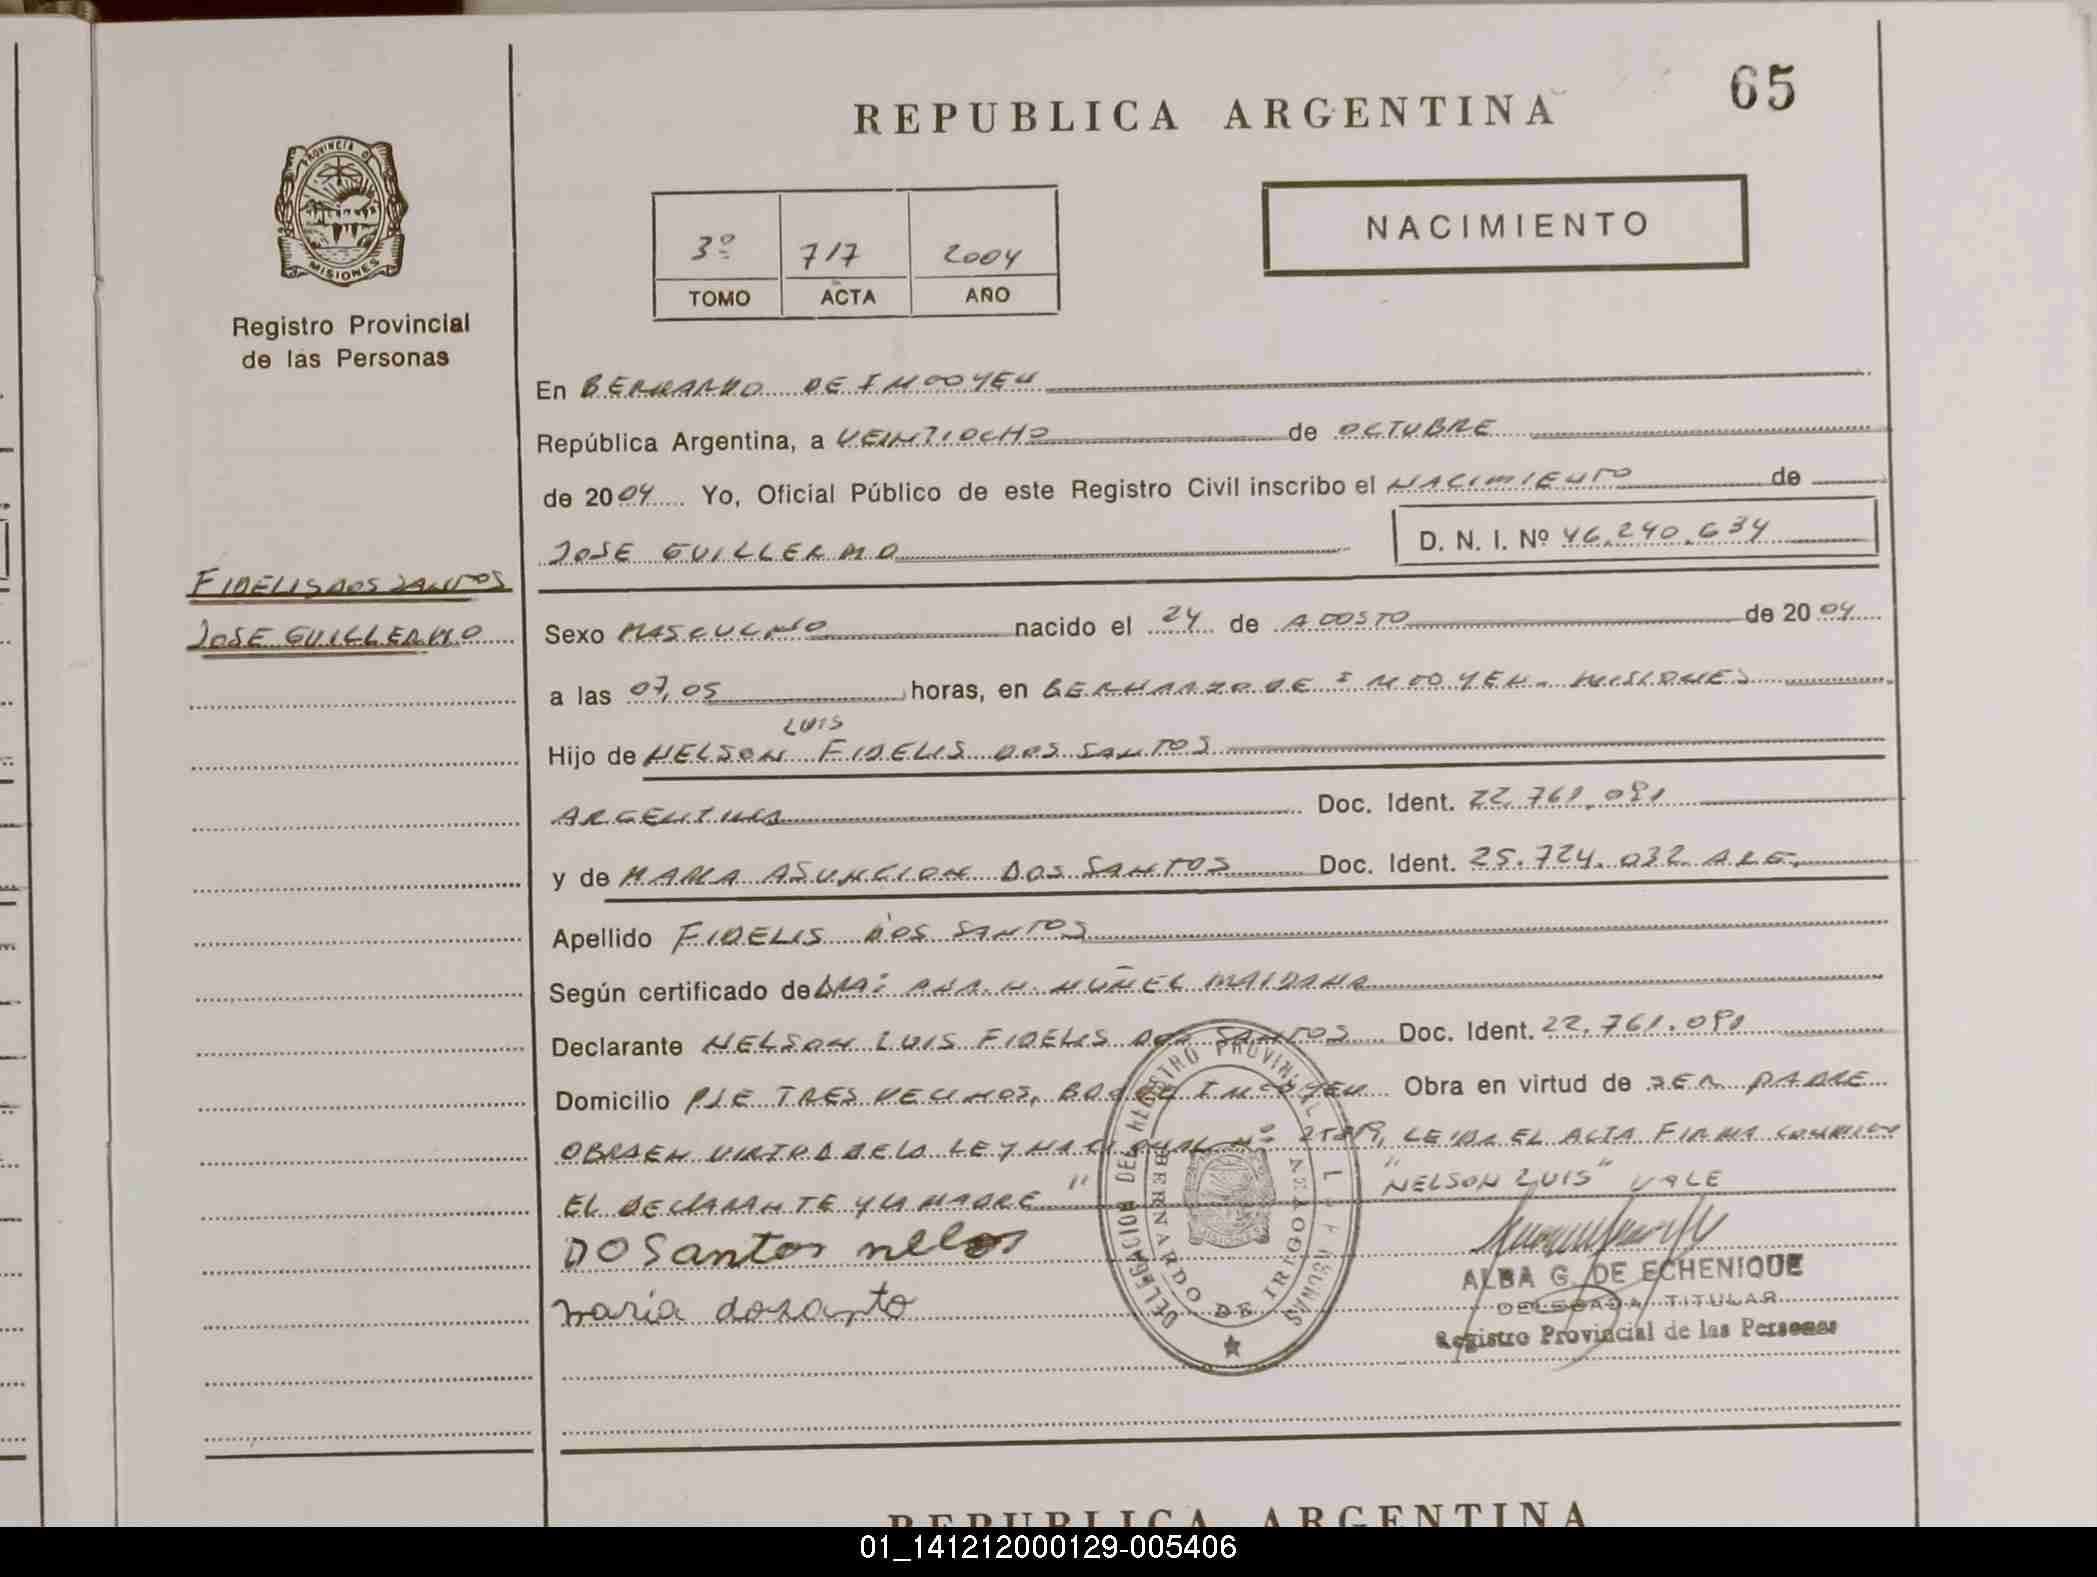 REPUBLICA ARGENTINA
65
PROVINCIA D
MISIONES
Registro Provincial
de las Personas
3º 717 2004
TOMO ACTA AÑO
NACIMIENTO
En BERNARDO DE IRIGOYEN
República Argentina, a VEINTIOCHO de OCTUBRE
de 2004 Yo, Oficial Público de este Registro Civil inscribo el NACIMIENTO de
JOSE GUILLERMO D. N. I. Nº 46.240.634
FIDELIS DOS SANTOS
JOSE GUILLERMO
Sexo MASCULINO nacido el 24 de AGOSTO de 2004
a las 07,05 horas, en BERNARDO DE IRIGOYEN - MISIONES
LUIS
Hijo de NELSON FIDELIS DOS SANTOS
ARGENTINA Doc. Ident. 22.761.091
y de MARIA ASUNCION DOS SANTOS Doc. Ident. 25.724.032 ARG.
Apellido FIDELIS DOS SANTOS
Según certificado de DRA: ANA. N. NUÑEZ MAIDANA
Declarante NELSON LUIS FIDELIS DOS SANTOS Doc. Ident. 22.761.091
Domicilio PJE TRES VECINOS, BDO DE IRIGOYEN Obra en virtud de SER PADRE
OBRA EN VIRTUD DE LA LEY NACIONAL Nº LEIDA EL ACTA FIRMA CONMIGO
EL DECLARANTE Y LA MADRE " "NELSON LUIS" VALE
DOSantos
maria dosanto
DELEGACION DEL REGISTRO PROVINCIAL DE LAS PERSONAS
BERNARDO DE IRIGOYEN
ALBA G. DE ECHENIQUE
DELEGADA TITULAR
Registro Provincial de las Personas
REPUBLICA ARGENTINA
01_141212000129-005406